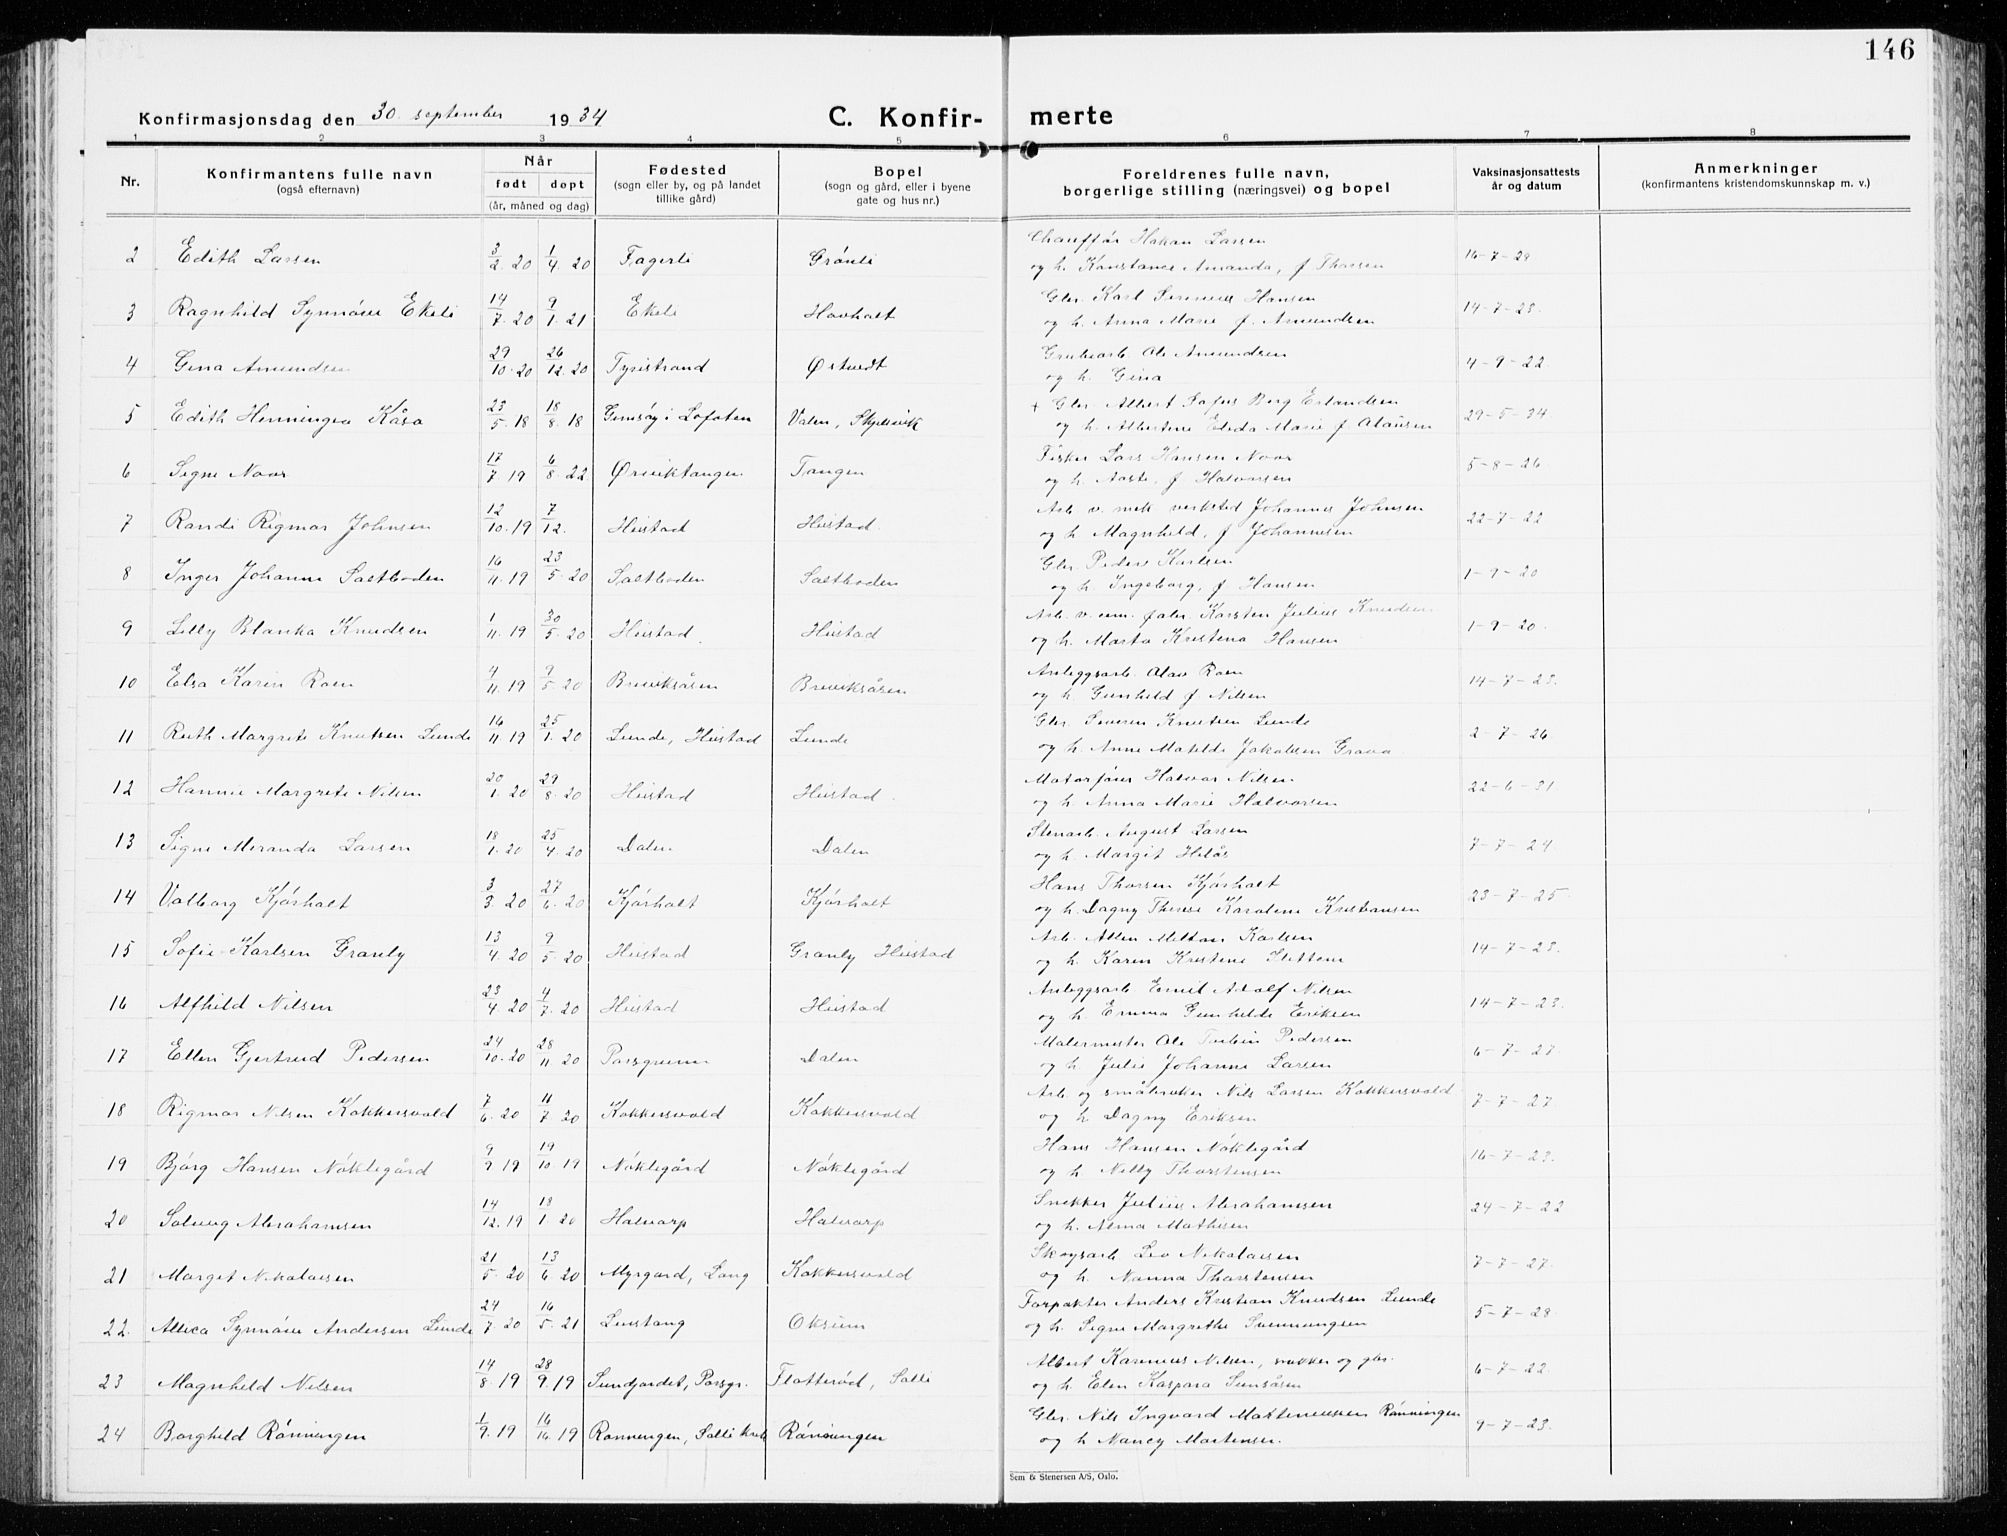 146
Konfirmasjonsdag den 30. september 1934
C. Konfir-merte
1 2 3 4 5 6 7 8
Nr.
Konfirmantens fulle navn
(også efternavn)
Når
født døpt
(år, måned og dag)
Fødested
(sogn eller by, og på landet
tillike gård)
Bopel
(sogn og gård, eller i byene
gate og hus nr.)
Foreldrenes fulle navn,
borgerlige stilling (næringsvei) og bopel
Vaksinasjonsattests
år og datum
Anmerkninger
(konfirmantens kristendomskunnskap m. v.)
2 Edith Larsen 3/2. 20 1/4. 20 Fagerli Grönli Chauffør Håkan Larsen
og h. Konstance Amanda, f Thorsen 16-7-28
3 Ragnhild Synnöve Ekeli 14/7. 20 9/1. 21 Ekeli Hovholt Gbr. Karl Severius Hansen
og h. Anna Marie f. Amundsen 14-7-23.
4 Gina Amundsen 29/10. 20 26/12. 20 Tyristrand Østvedt Grubearb. Ole Amundsen
og h. Gina 4-9-22
5 Edith Henningea Kåsa 23/5. 18 18/8. 18 Gimsöy i Lofoten Valen, Skjelsvik + Gbr. Albert Sofus Berg Erlandsen
og h. Albertine Elida Marie f Olausen 29-5-34
6 Signe Noor 17/7. 19 6/8. 22 Ørviktangen Tangen Fisker Lars Hansen Noor
og h. Aaste, f Halvorsen 5-8-26
7 Randi Rigmor Johnsen 12/10. 19 7/12. Heistad Heistad. Arb. v. mek verksted Johannes Johnsen
og h Magnhild, f Johannesen 22-7-22
8 Inger Johanne Saltboden 16/11. 19 23/5. 20 Saltboden Saltboden Gbr. Peder Karlsen
og h. Ingeborg, f Hansen 1-9-20
9 Lilly Blanka Knudsen 1/11. 19 30/5. 20 Heistad Heistad Arb. v. cem. fabr. Karsten Julius Knudsen
og h. Marta Kristena Hansen 1-9-20.
10 Elsa Karin Roen 4/11. 19 9/5. 20 Breviksåsen Breviksåsen Anleggsarb. Olav Roen
og h. Gunhild f Nilsen 14-7-23.
11 Ruth Margrete Knutsen Lunde 16/11. 19 25/1. 20 Lunde, Heistad Lunde Gbr Severin Knutsen Lunde
og h. Anne Matilde Jakobsen Grava 2-7-26
12 Hannie Margrete Nilsen 20/1. 20 29/8. 20 Heistad Heistad. Motorfører Halvor Nilsen
og h. Anna Marie Halvorsen 22-6-31
13 Signe Meranda Larsen 18/1. 20 25/4. 20 Dalen Dalen Stenarb. August Larsen
og h. Margit Helås 7-7-24
14 Valborg Kjörholt 3/3. 20 27/6. 20 Kjörholt Kjörholt Hans Thorsen Kjörholt
og h. Dagny Therese Karolene Kristiansen 23-7-25.
15 Sofie Karlsen Granly 13/4. 20 9/5. 20 Heistad Granly Heistad Arb. Allen Karlsen
og h. Karen Kristene Slettene 14-7-23.
16 Alfhild Nilsen 23/4. 20 4/7. 20 Heistad Heistad Anleggsarb Emil Adolf Nilsen
og h. Emma Gunhilde Eriksen 14-7-23.
17 Ellen Gjertrud Pedersen 24/10. 20 28/11. 20 Porsgrunn Dalen Malermester Ole Pedersen
og h. Julie Johanne Larsen 6-7-27.
18 Rigmor Nilsen Kokkersvold 7/6. 20 11/7. 20 Kokkersvold Kokkersvold Arb. og småbruker Nils Larsen Kokkersvold
og h. Dagny Eriksen 7-7-27.
19 Bjórg Hansen Nöklegård 9/9. 19 19/10. 19 Nöklegård Nöklegård Hans Hansen Nöklegård
og h. Nelly Thorstensen 16-7-23.
20 Solveig Abrahamsen 14/12. 19 18/1. 20 Halvarp Halvarp Snekker Julius Abrahamsen
og h. Nema Mathisen 24-7-22
21 Margit Nikolaisen 21/5. 20 13/6. 20 Myrgard, Lang Kokkersvold Skogsarb Leo Nikolaisen
og h. Nanna Thorstensen 7-7-27.
22. Allica Synnöve Andersen Lunde 24/7. 20 16/5. 21 Linstang Oksum Forpakter Anders Kristian Knudsen Lunde
og h. Signe Margrethe Svennungsen 5-7-28
23 Magnhild Nilsen 14/8. 19 28/9. 19 Sundjordet, Porsgr. Flatteröd, Solli Albert Rasmus Nilsen, snekker og gbr.
og h. Elen Kaspara 6-7-22.
24 Borghild Rönningen 1/9. 19 16/. 19 Rönningen, Solli Rönningen Gbr. Nils Ingvard Rönningen
og h Nancy Martensen. 9-7-23.
Sem & Stenersen A/S, Oslo.